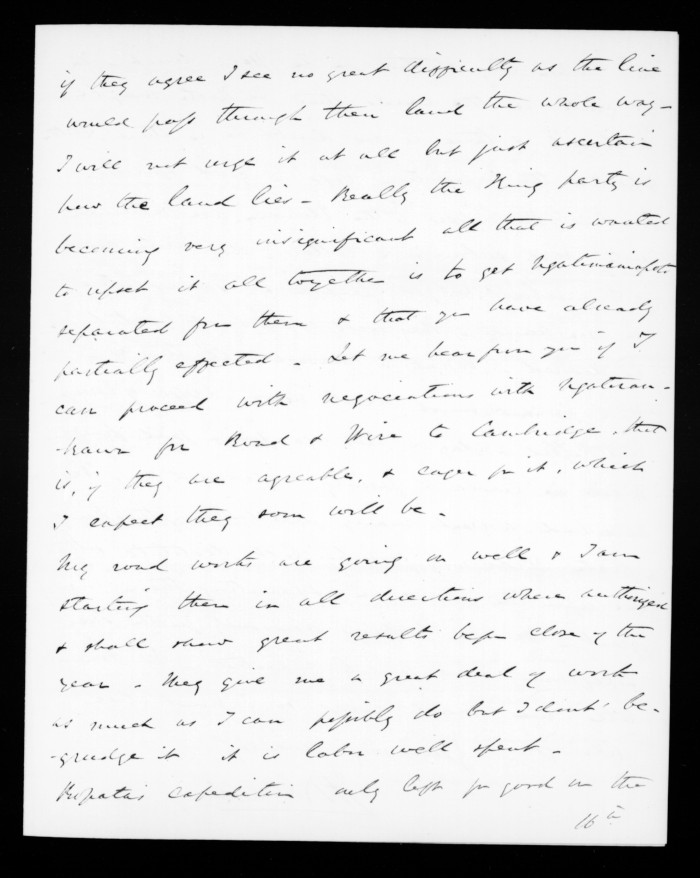 if they agree I see no great difficulty as the line
would pass through their land the whole way -
I will not urge it at all but just ascertain
how the land lies - Really the King party is
becoming very insignificant all that is wanted
to upset it all together is to get Ngatimaniapoto
separated from them & that you have already
partially effected - Let me hear from you if I
can proceed with negociations with Ngatirau-
-kawa for Road & Wire to Cambridge, that
is, if they are agreable, & eager for it, which
I expect they soon will be -
My road works are going on well & I am
starting them in all directions where authorized
& shall show great results before close of the
year - They give me a great deal of work
as much as I can possibly do but I dont be-
-grudge it it is labor well spent -
Ropata's expedition only left for good on the
16th